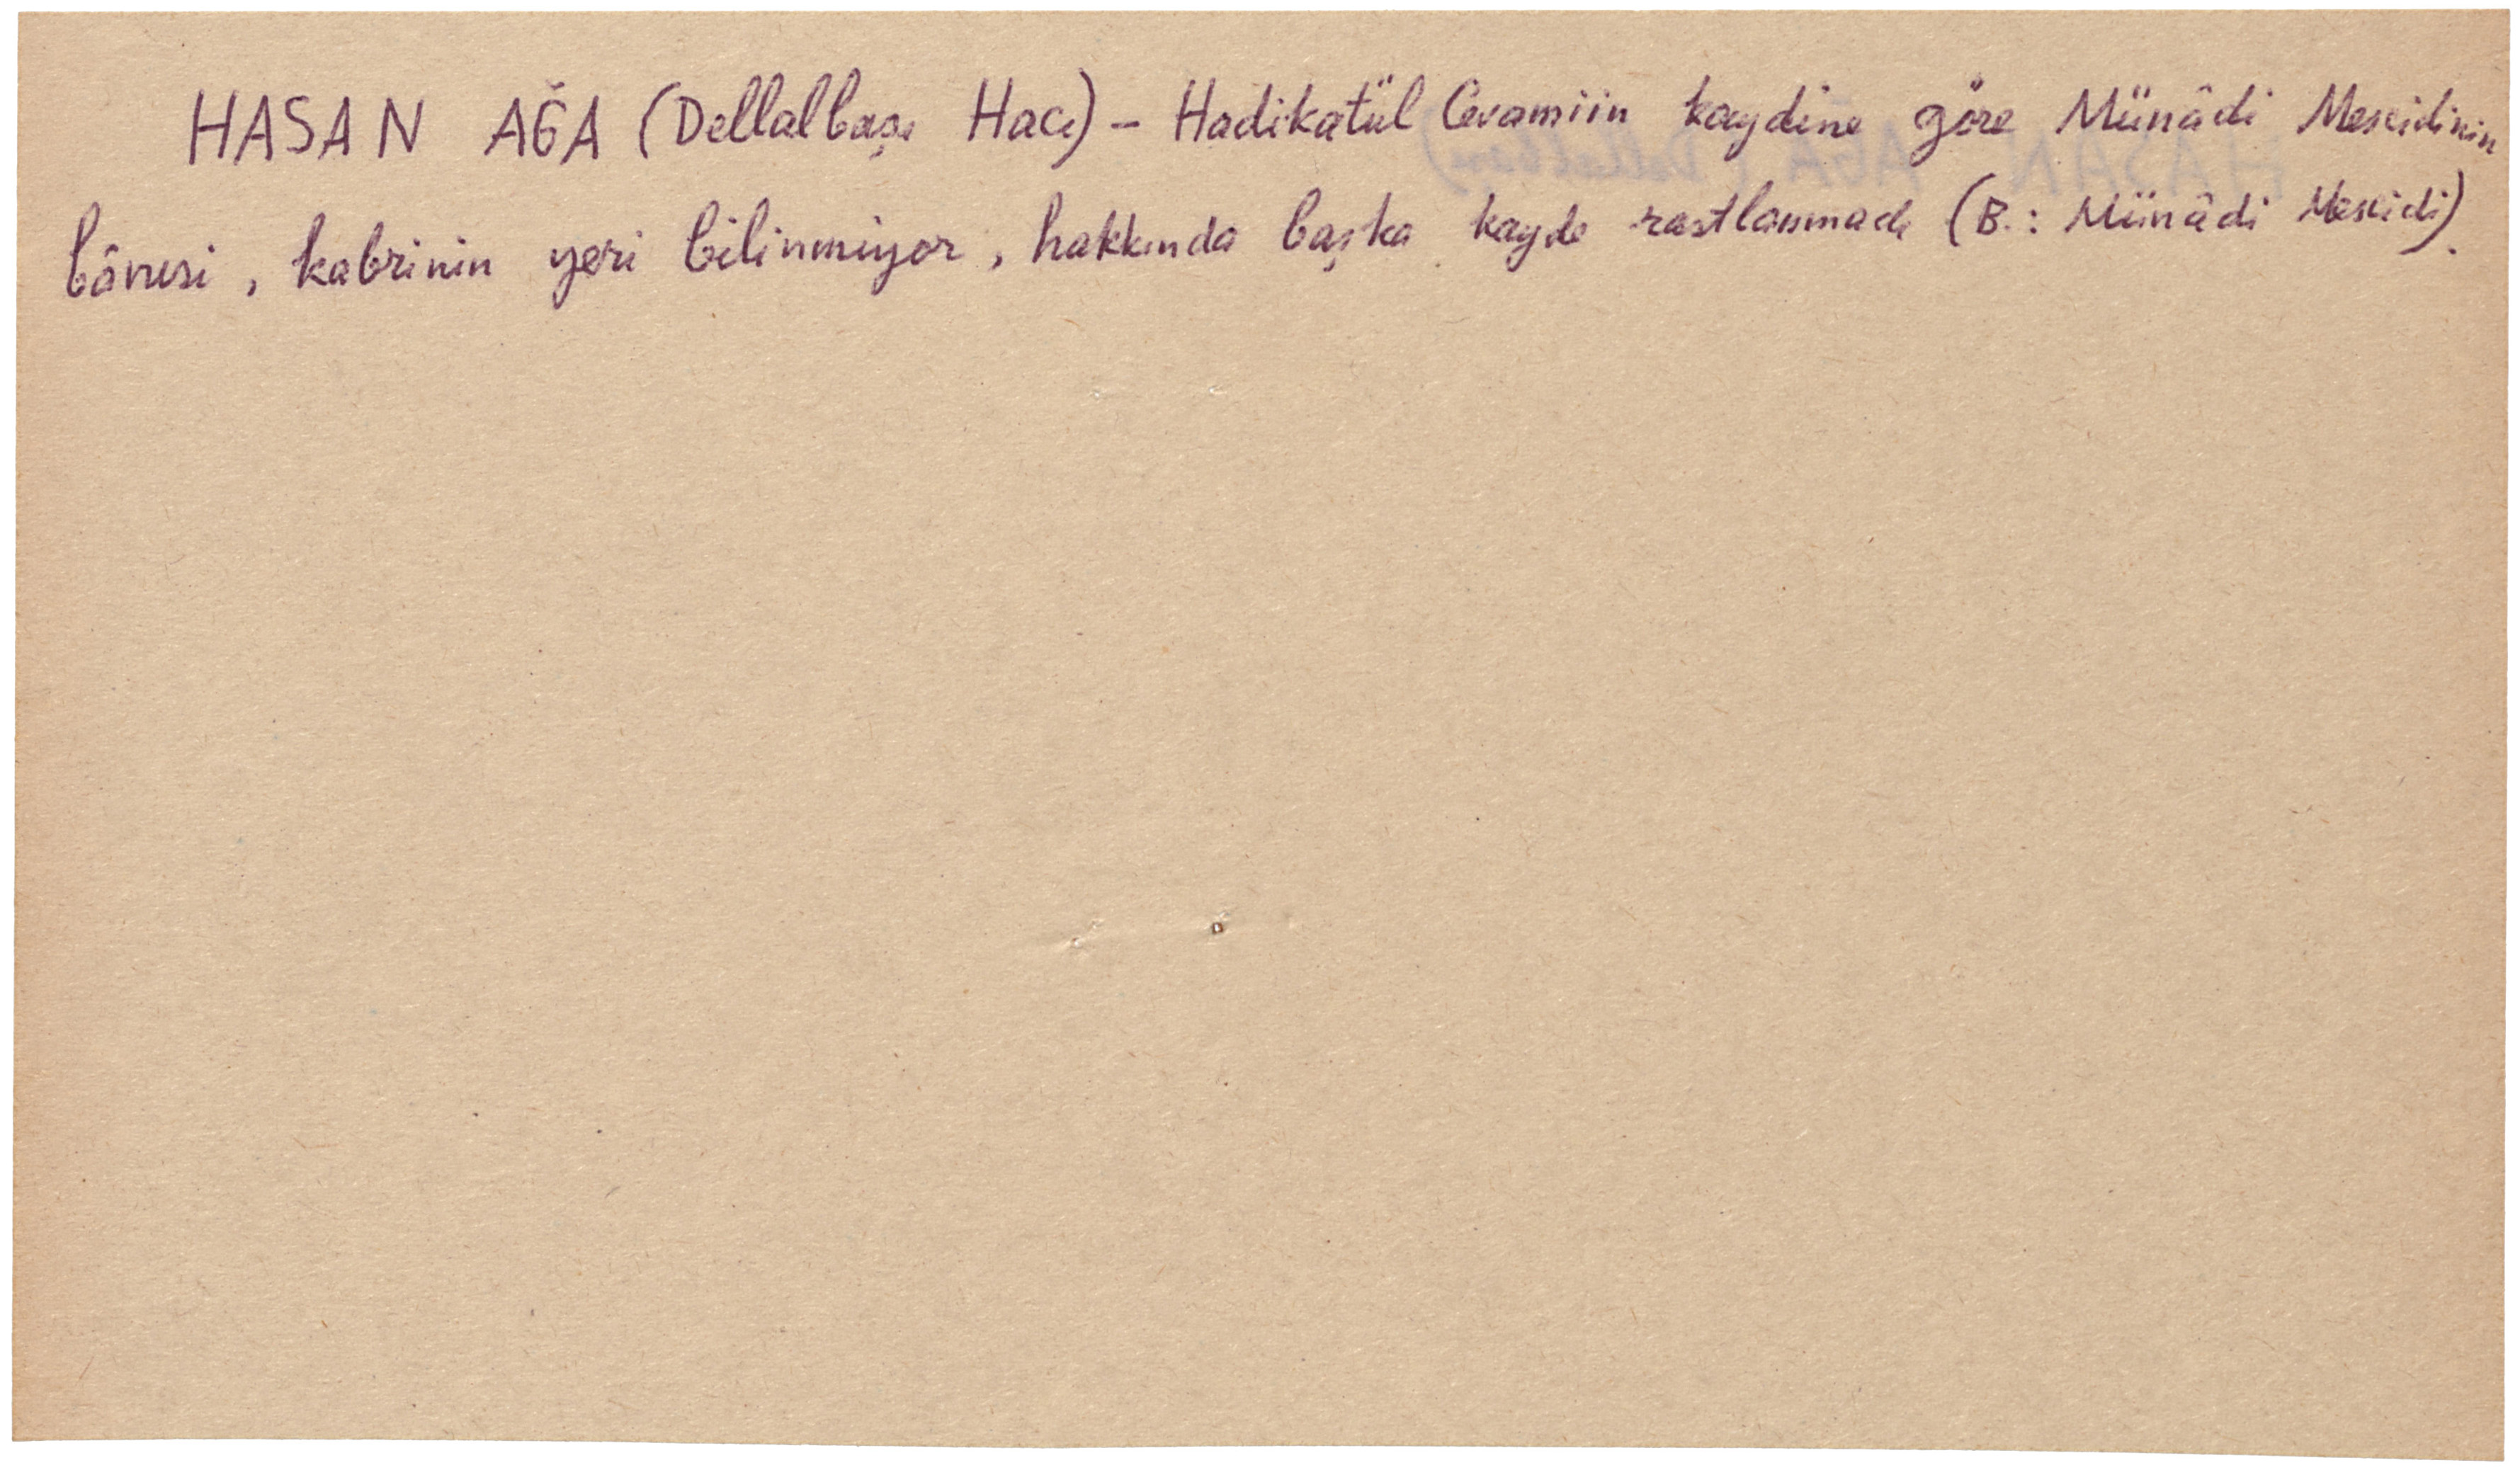 HASAN AĞA (Dellalbaşı Hacı) - Hadikatül Cevamiin kaydine göre Münâdi Mescidinin
bânisi, kabrinin yeri bilinmiyor, hakkında başka kayde rastlanmadı (B.: Münâdi Mescidi).